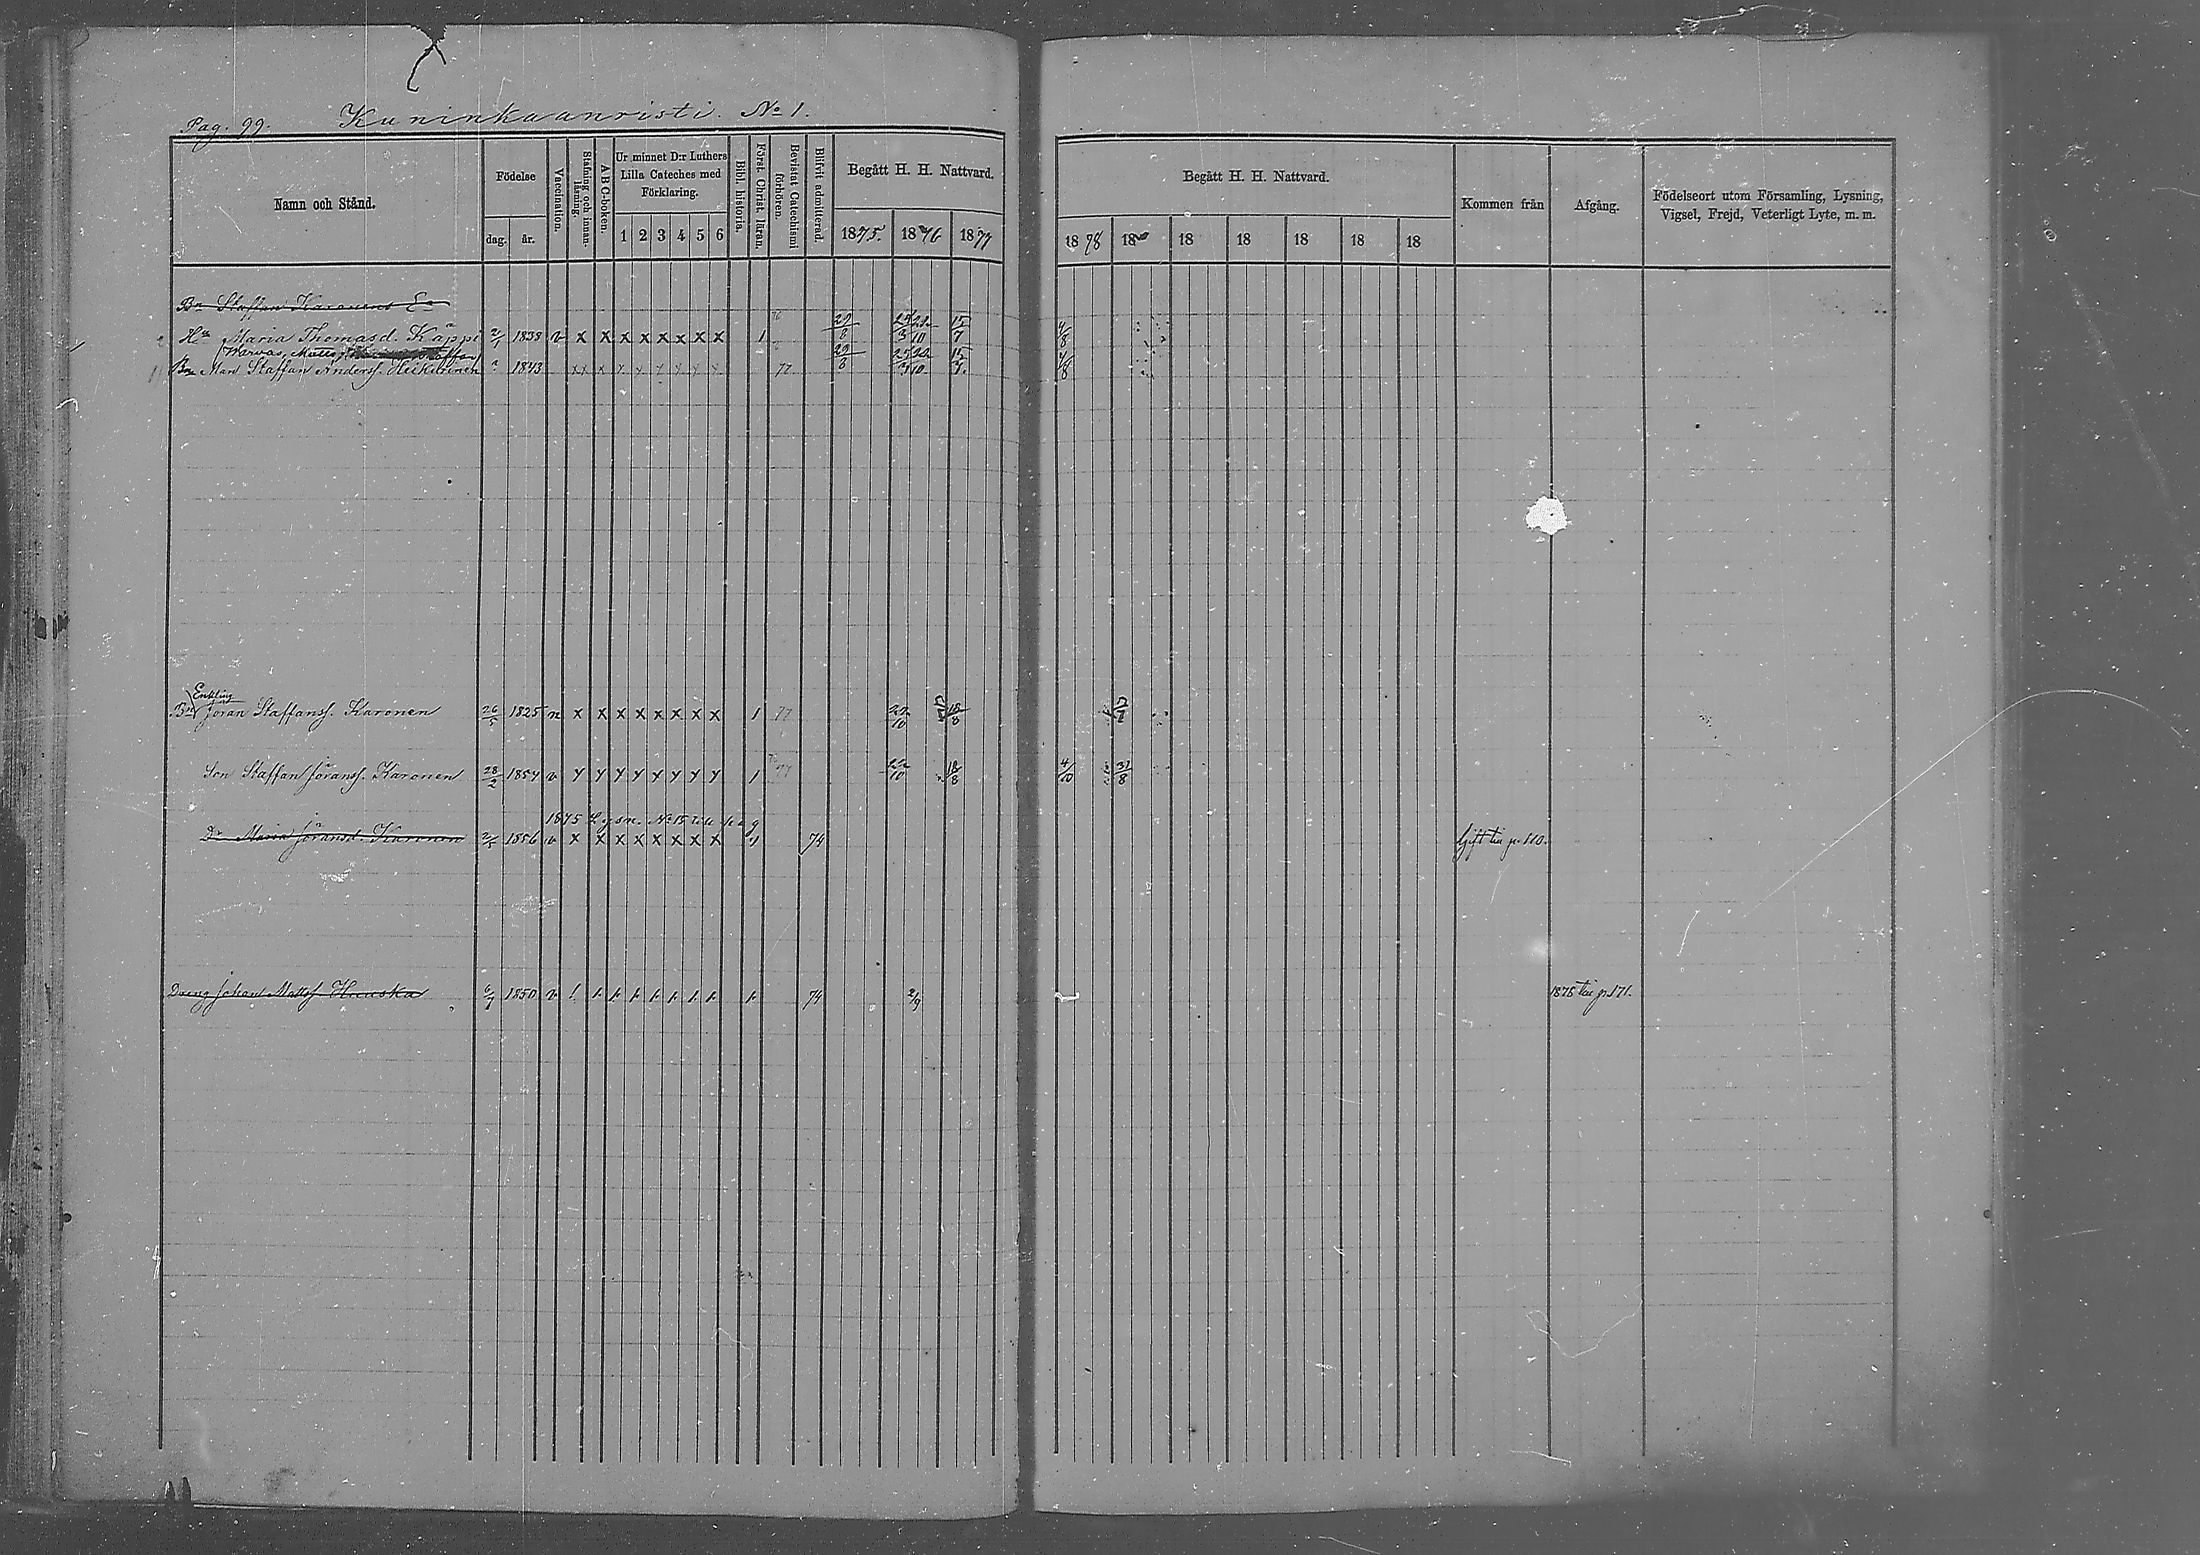 Pag. 99. Kuninkaanristi. No 1.
Namn och Stånd. Födelse Vaccination. Stafning och innanläsning. A B C-boken. Ur minnet D:r Luthers Lilla Cateches med Förklaring. Bibl. historia. Först. Christ. läran. Bevistat Catechismi förhören. Blifvit admitterad. Begått H. H. Nattvard. Begått H. H. Nattvard. Kommen från Afgång. Födelseort utom Församling, Lysning, Vigsel, Frejd, Veterligt Lyte, m. m.
dag. år. 1 2 3 4 5 6 1875. 1876 1877 1878 18 18 18 18 18 18
Bn Staffan Karonens Ea
Hu Maria Thomasd. Käppi 2/1 1838 v x x x x x x x x 1 29/8 25/3 22/10 15/7 4/8
Bn Man Staffan Anderss. Heikurinen 1843 x x x x x x x x 77 29/8 25/3 22/10 15/7 4/8
Enkling
Bn Jöran Staffanss. Karonen 26/5 1825 n x x x x x x x x 1 77 22/10 18/8
Son Staffan Jöranss. Karonen 28/2 1854 v x x x x x x x x 1 77 22/10 18/8 4/10 31/8
1875 Lysn. No 15
Dr Maria Jöransd. Karonen 1856 v x x x x x x x x 1 74 Gift till p. 110.
Dreng Johan Matss. Hauska 6/7 1850 v 74 2/9 1878 till p. 171.